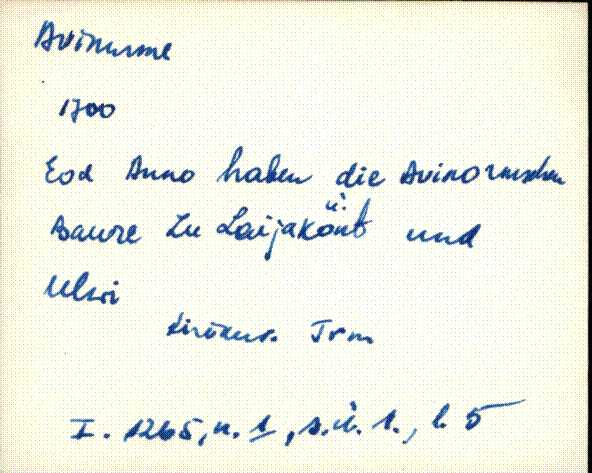 Avinurme
1700
Eod Anno haben die Avinormschen
Baure zu Laijakönt und
Ulwi
I. 1265, n. 1, s.ü. 1., l. 5